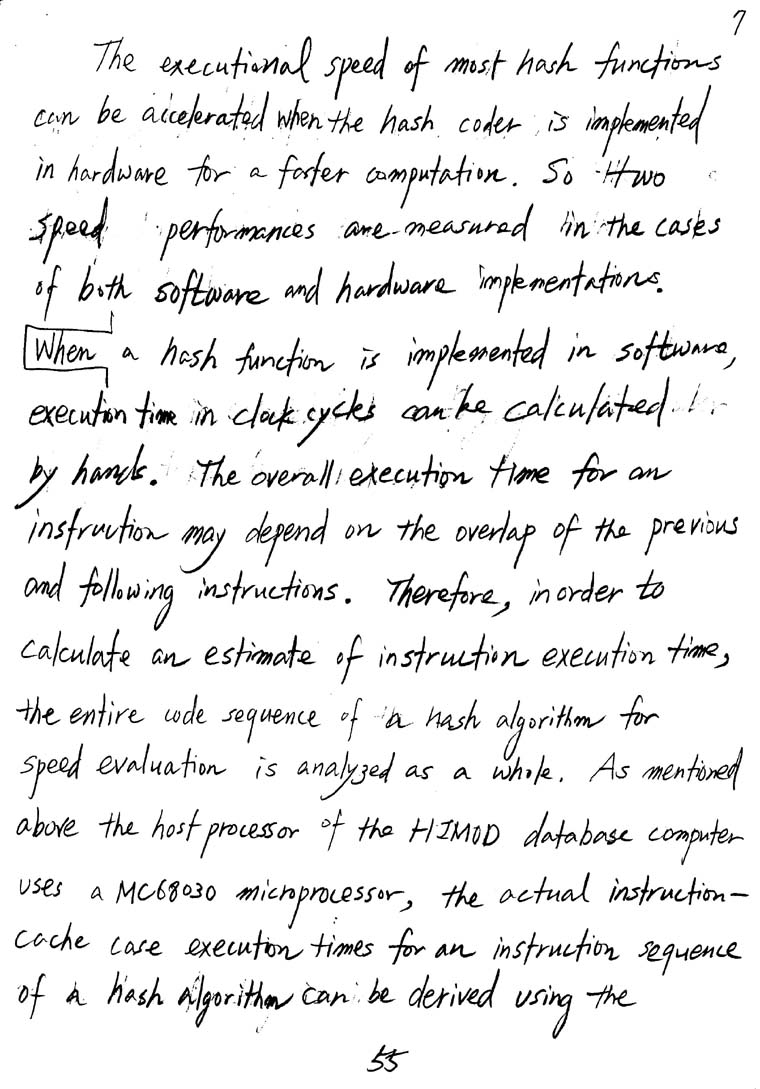 7
The executional speed of most hash functions
can be accelerated when the hash coder is implemented
in hardware for a faster computation. So two
speed performances are measured in the cases
of both software and hardware implementations.
When a hash function is implemented in software,
execution time in clock cycles can be calculated
by hands. The overall execution time for an
instruction may depend on the overlap of the previous
and following instructions. Therefore, in order to
calculate an estimate of instruction execution time,
the entire code sequence of a hash algorithm for
speed evaluation is analyzed as a whole. As mentioned
above the host processor of the HIMOD database computer
uses a MC68030 microprocessor, the actual instruction-
cache case execution times for an instruction sequence
of a hash algorithm can be derived using the
55